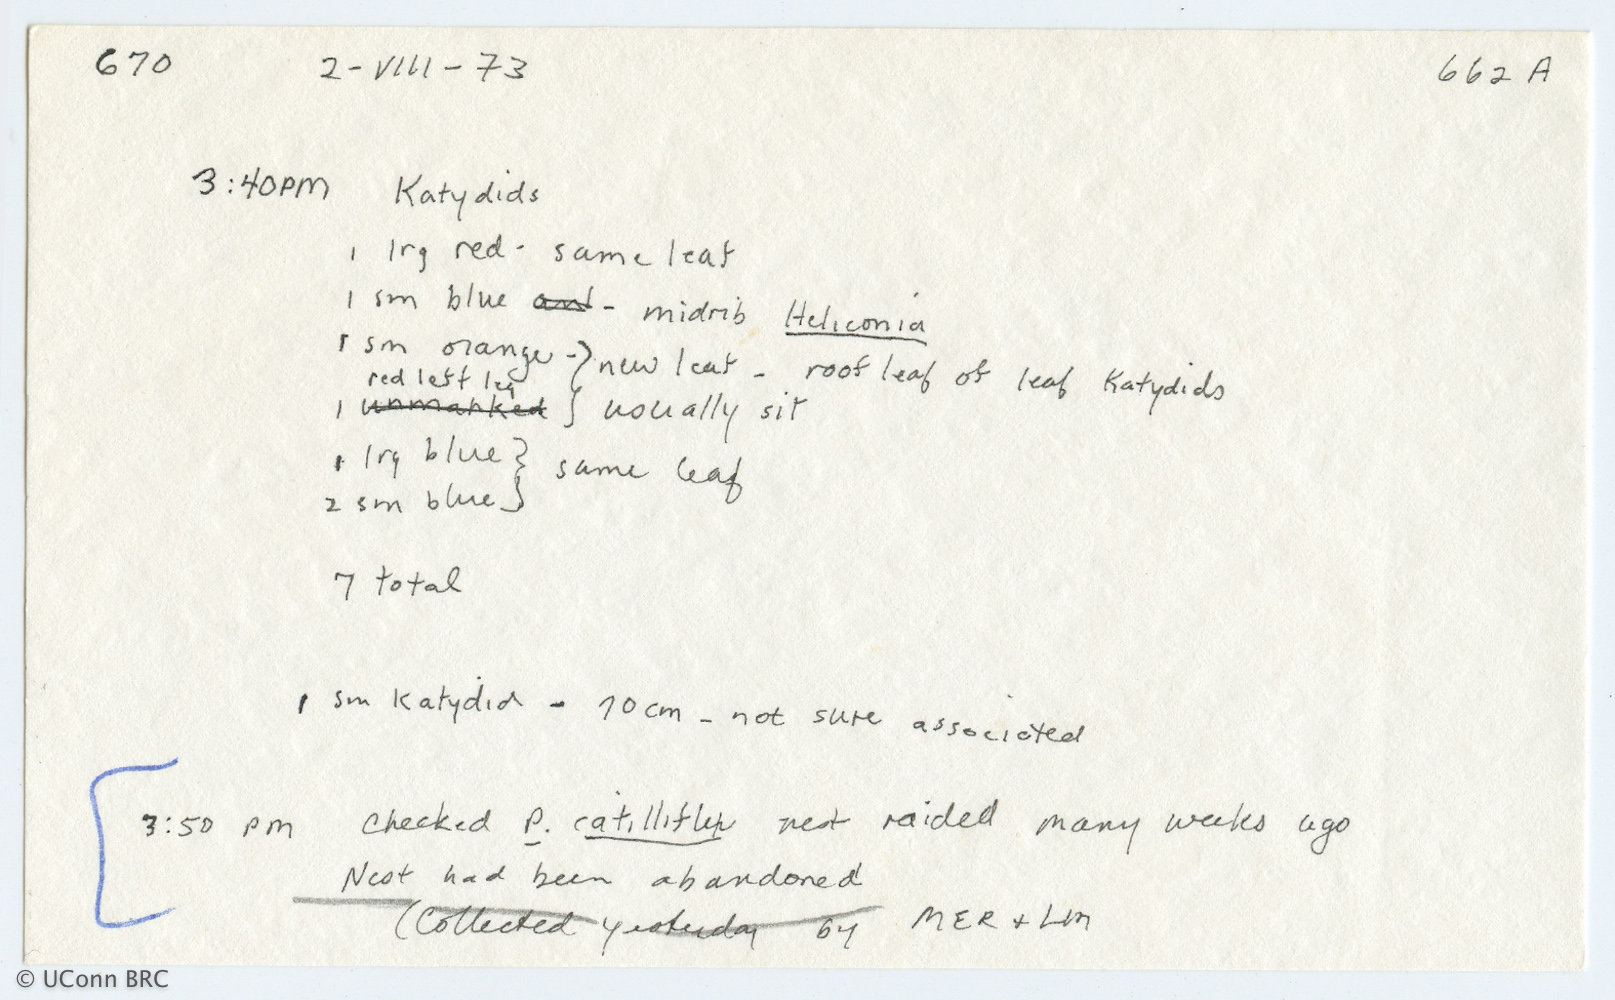 670 2-VIII-73 662 A
3:40PM Katydids
1 lrg red - same leaf
1 sm blue and - midrib Heliconia
1 sm orange - } new leaf - roof leaf of leaf Katydids
red left leg
1 unmarked } usually sit
1 lrg blue } same leaf
2 sm blue }
7 total
1 sm Katydid - 10cm - not sure associated
3:50 pm checked P. nest raided many weeks ago
Nest had been abandoned
(Collected yesterday by MER + LM
© UConn BRC